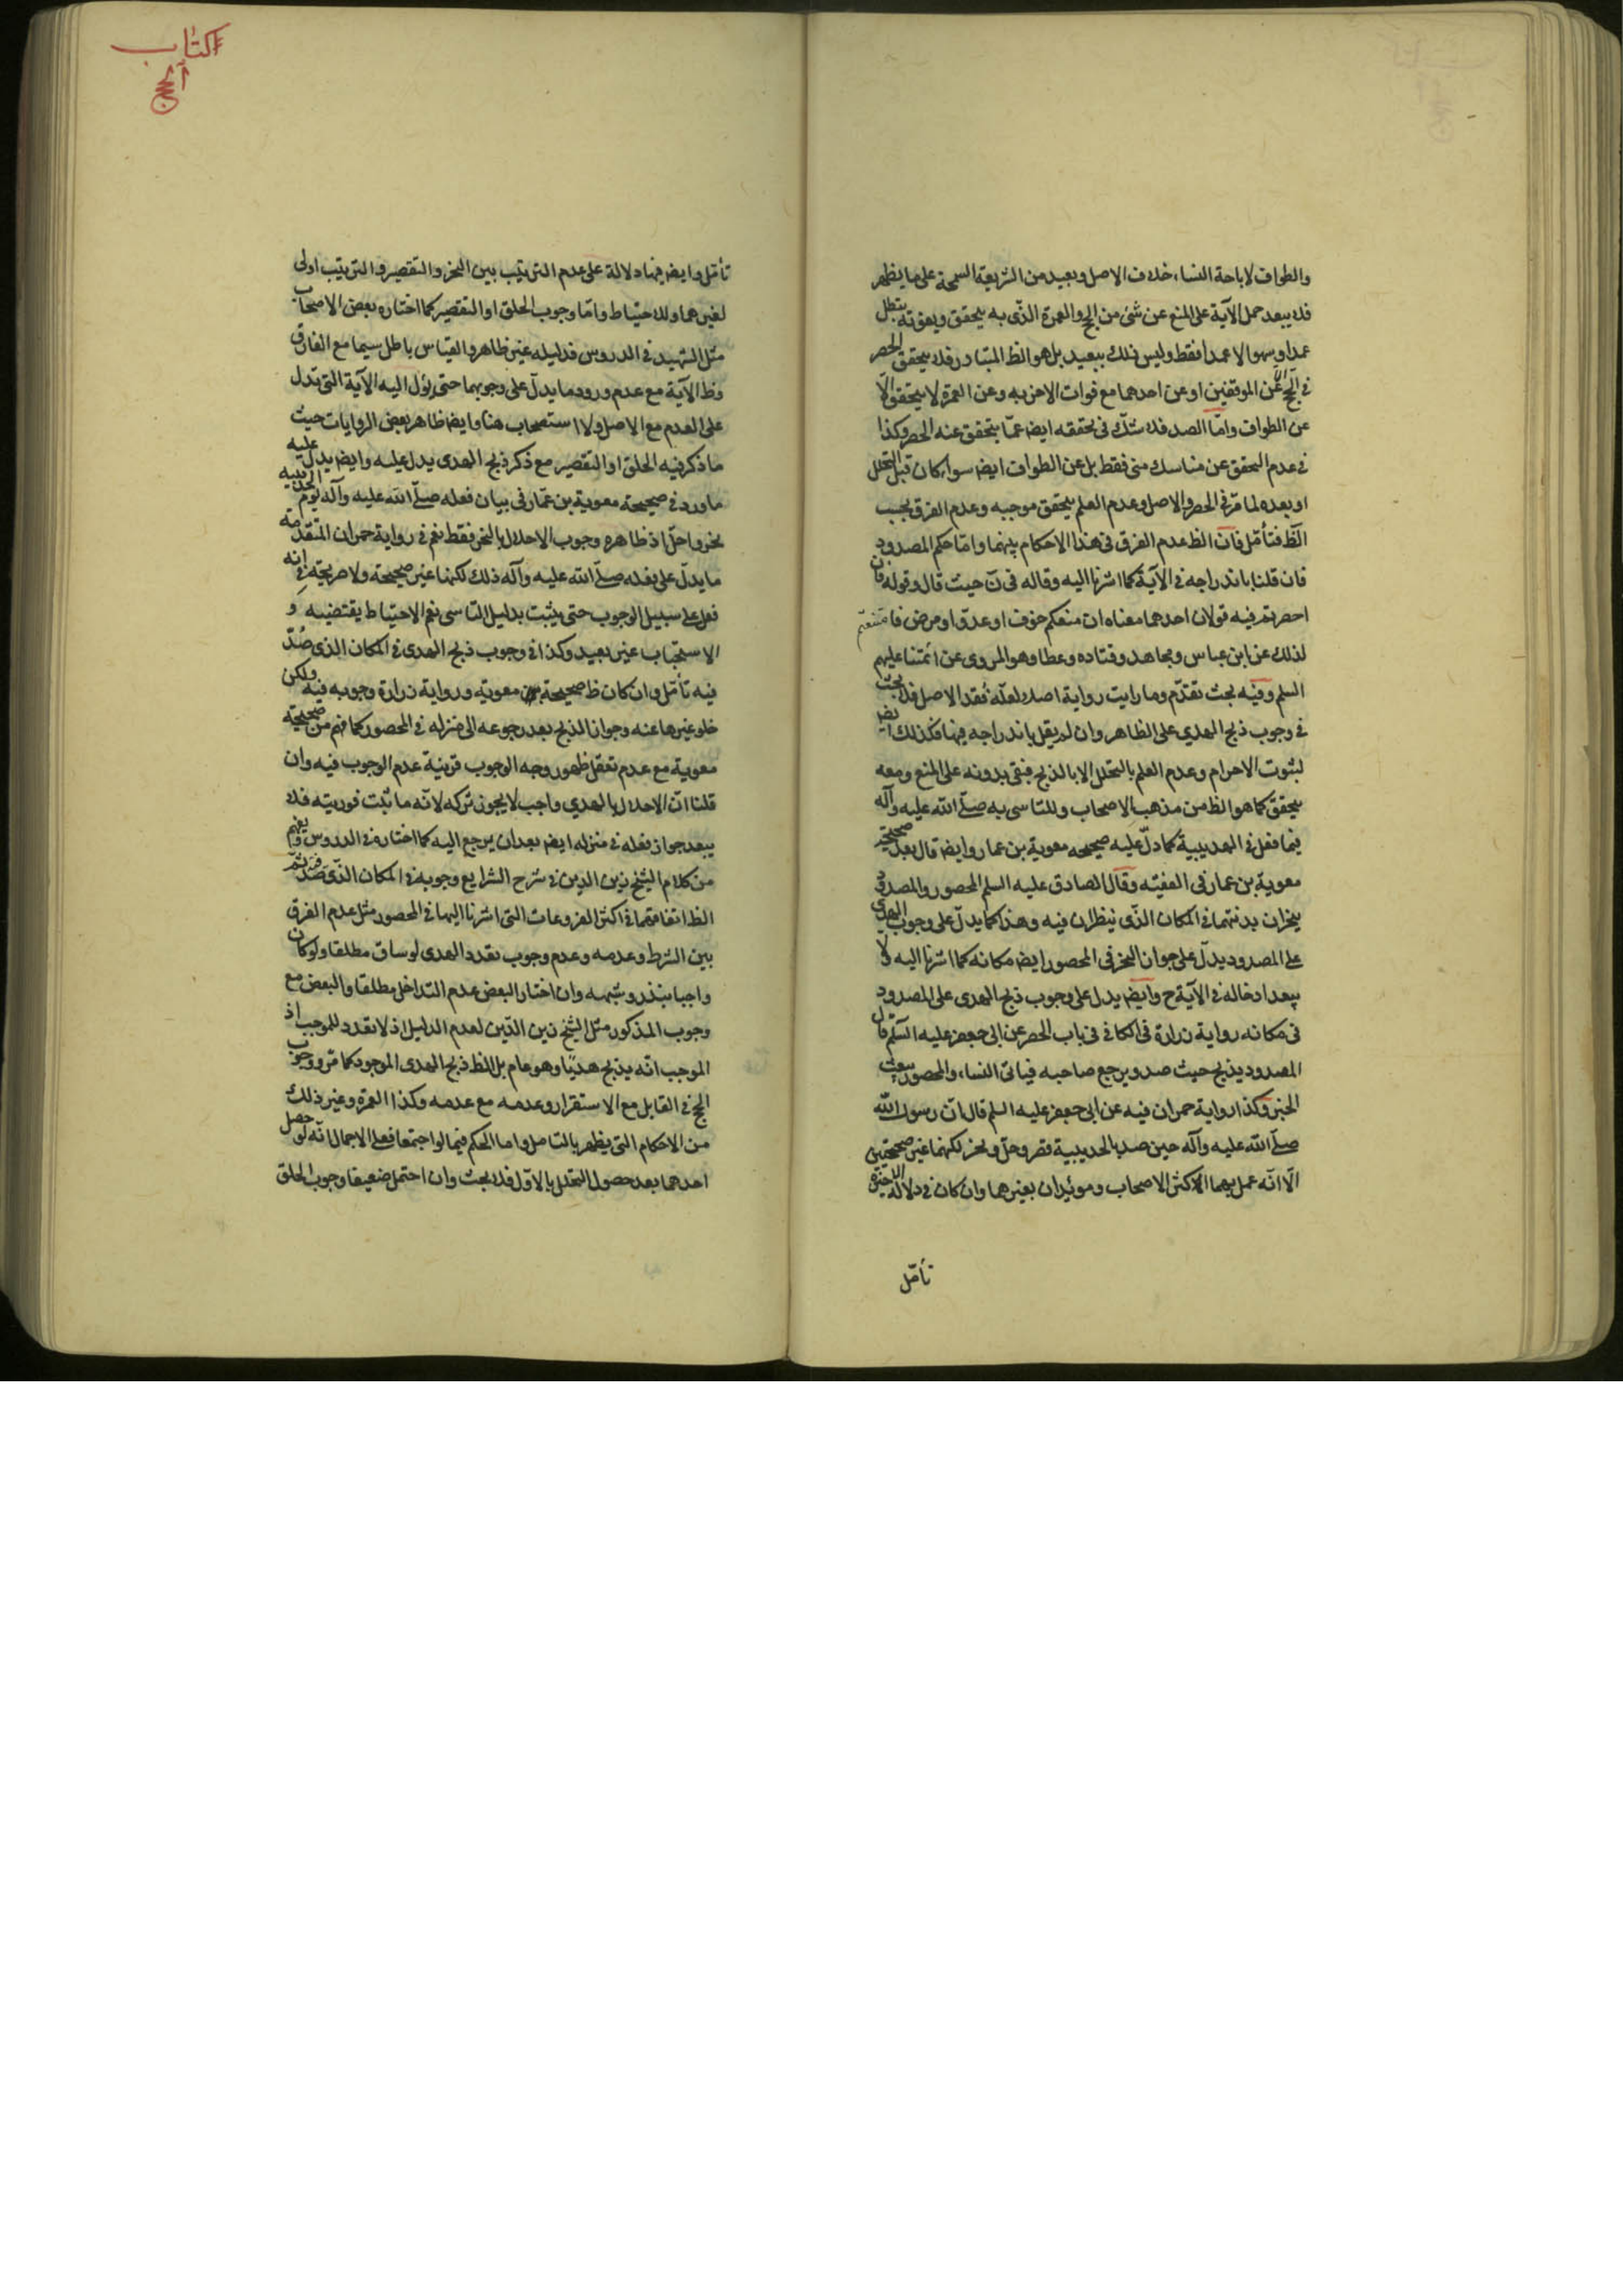 والطواف لاباحة النساء خلاف الاصل وبعيد من الشريعة السمحة على ما يظهر
فلا يبعد حمل الآية على المنع عن شئ من الحج والعمرة الذى به يتحقق وبفوته يبطل
عمدا وسهوا لا عمدا فقط وليس ذلك ببعيد بل هو الظ المتبادر فلا يتحقق الحصر
فى الحج الا عن الموقفين او عن احدهما مع فوات الاخر به وعن العمرة لا يتحقق الا
عن الطواف واما الصد فلا شك فى تحققه ايض عما يتحقق عنه الحصر وكذا
فى عدم التحقق عن مناسك منى فقط بل عن الطواف ايض سواء كان قبل التحلل
او بعده لما مر فى الحصر والاصل وعدم العلم بتحقق موجبه وعدم الفرق بحسب
الظ فتأمل فان الظ عدم الفرق فى هذا الاحكام بينهما واما حكم المصدود
فان قلنا باندراجه فى الآية كما اشرنا اليه وقاله فى ن حيث قال وقوله فان
احصرتم فيه قولان احدهما معناه ان منعكم خوف او عدو او مرض فامتنعتم
لذلك عن ابن عباس ومجاهد وقتاده وعطا وهو المروى عن ائمتنا عليهم
السلم وفيه بحث تقدم وما رايت رواية اصلا لعله نقد الاصل فلا بحث
فى وجوب ذبح الهدي على الظاهر وان لم يقل باندراجه فيها فكذلك ايض
لثبوت الاحرام وعدم العلم بالتحلل الا بالذبح فبقى بدونه على المنع ومعه
يتحقق كما هو الظ من مذهب الاصحاب وللتاسى به صلى الله عليه وآله
فيما فعل فى الحديبية كما دل عليه صحيحه معوية بن عمار وايض قال بعد صحيحة
معوية بن عمار فى الفقيه وقال الصادق عليه السلم المحصور والمصدود
ينحران بدنتهما فى المكان الذى يضطران فيه وهذا كما يدل على وجوب الهدى
على المصدود يدل على جواز النحر فى المحصور ايض مكانه كما اشرنا اليه ولا
يبعد ادخاله فى الآية ح وايضا يدل على وجوب ذبح الهدى على المصدود
فى مكانه رواية زرارة فى الكافى فى باب الحصر عن ابى جعفر عليه السلم قال
المصدود يذبح حيث صد ويرجع صاحبه فياتى النساء والمحصور يبعث
الخبر وكذا رواية حمران فيه عن ابى جعفر عليه السلم قال ان رسول الله
صلى الله عليه وآله حين صد بالحديبية قصر وحل ونحر لكنهما غير صحيحتين
الا انه عمل بهما الاكثر الاصحاب ومويدان بغيرهما وان كان فى دلالة الاخيرة
تأمل
كتاب
الحج
تأمل وايض فيها دلالة على عدم الترتيب بين النحر والتقصير والترتيب اولى
لغيرهما وللاحتياط واما وجوب الحلق او التقصير كما اختاره بعض الاصحاب
مثل الشهيد فى الدروس فدليله غير ظاهر والقياس باطل سيما مع الفارق
وظ الآية مع عدم ورود ما يدل على وجوبهما حتى يؤل اليه الآية التى تدل
على العدم مع الاصل ولا استصحاب هنا وايض ظاهر بعض الروايات حيث
ما ذكر فيه الحلق او التقصير مع ذكر ذبح الهدى يدل عليه وايض يدل عليه
ما ورد فى صحيحة معوية بن عمار فى بيان فعله صلى الله عليه وآله يوم الحديبيه
نحر واحل اذ ظاهره وجوب الاحلال بالنحر فقط نعم فى رواية حمران المتقدمة
ما يدل على فعله صلى الله عليه وآله ذلك لكنها غير صحيحة ولا صريحة فى انه
فعل على سبيل الوجوب حتى يثبت بدليل التاسى نعم الاحتياط يقتضيه و
الاستحباب غير بعيد وكذا فى وجوب ذبح الهدى فى المكان الذى صُدّ
فيه تأمل وان كان ظ صحيحة معوية ورواية زرارة وجوبه فيه ولكن
خلو غيرها عنه وجواز الذبح بعد رجوعه الى منزله فى المحصور كما فهم من صحيحة
معوية مع عدم تعقل ظهور وجه الوجوب قرينة عدم الوجوب فيه وان
قلنا ان الاحلال بالهدي واجب لا يجوز تركه لانه ما ثبت فوريته فلا
يبعد جواز فعله فى منزله ايض بعد ان يرجع اليه كما اختاره فى الدروس ويفهم
من كلام الشيخ زين الدين فى شرح الشرايع وجوبه فى المكان الذى صُدّ فيه ثم
الظ اتفاقهما فى اكثر الفروعات التى اشرنا اليها فى المحصور مثل عدم الفرق
بين الشرط وعدمه وعدم وجوب تعدد الهدى لو ساق مطلقا ولو كان
واجبا بنذر وشبهه وان اختار البعض عدم التداخل مطلقا والبعض مع
وجوب المذكور مثل الشيخ زين الدين لعدم الدليل اذ لا تعدد للموجب اذ
الموجب انه يذبح هديا وهو عام بل الظ ذبح الهدى الموجود كما مر ووجوب
الحج فى القابل مع الاستقرار وعدمه مع عدمه وكذا العمرة وغير ذلك
من الاحكام التى يظهر بالتامل واما الحكم فيما لو اجتمعا فعلى الاجمال انه لو حصل
احدهما بعد حصول التحلل بالاول فلا بحث وان احتمل ضعيفا وجوب الحلق